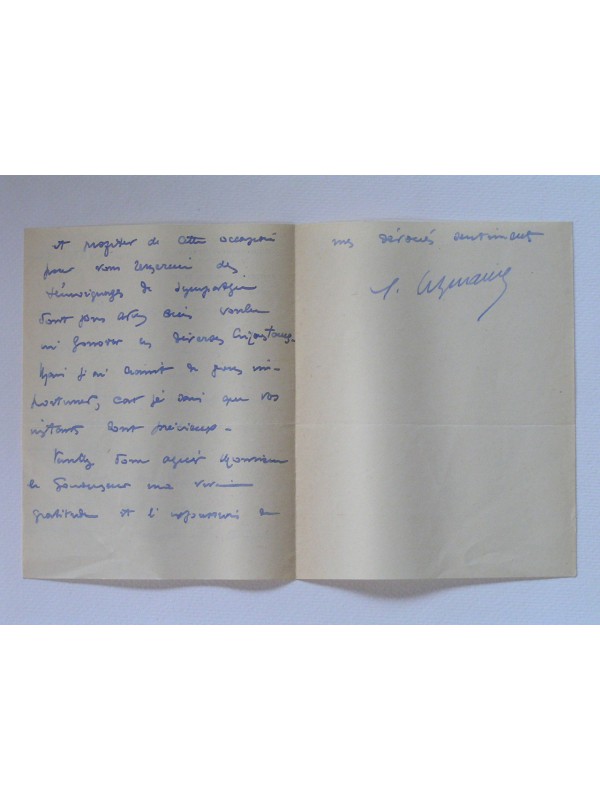 et profiter de cette occasion
pour vous remercier des
témoignages de sympathie
dont vous avez bien voulu
m'honorer en diverses circonstances.
Mais j'ai craint de vous im-
portuner, car je sais que vos
instants sont précieux -
Veuillez donc agréer Monsieur
le Gouverneur ma vive
gratitude et l'expression de
mes dévoués sentiments